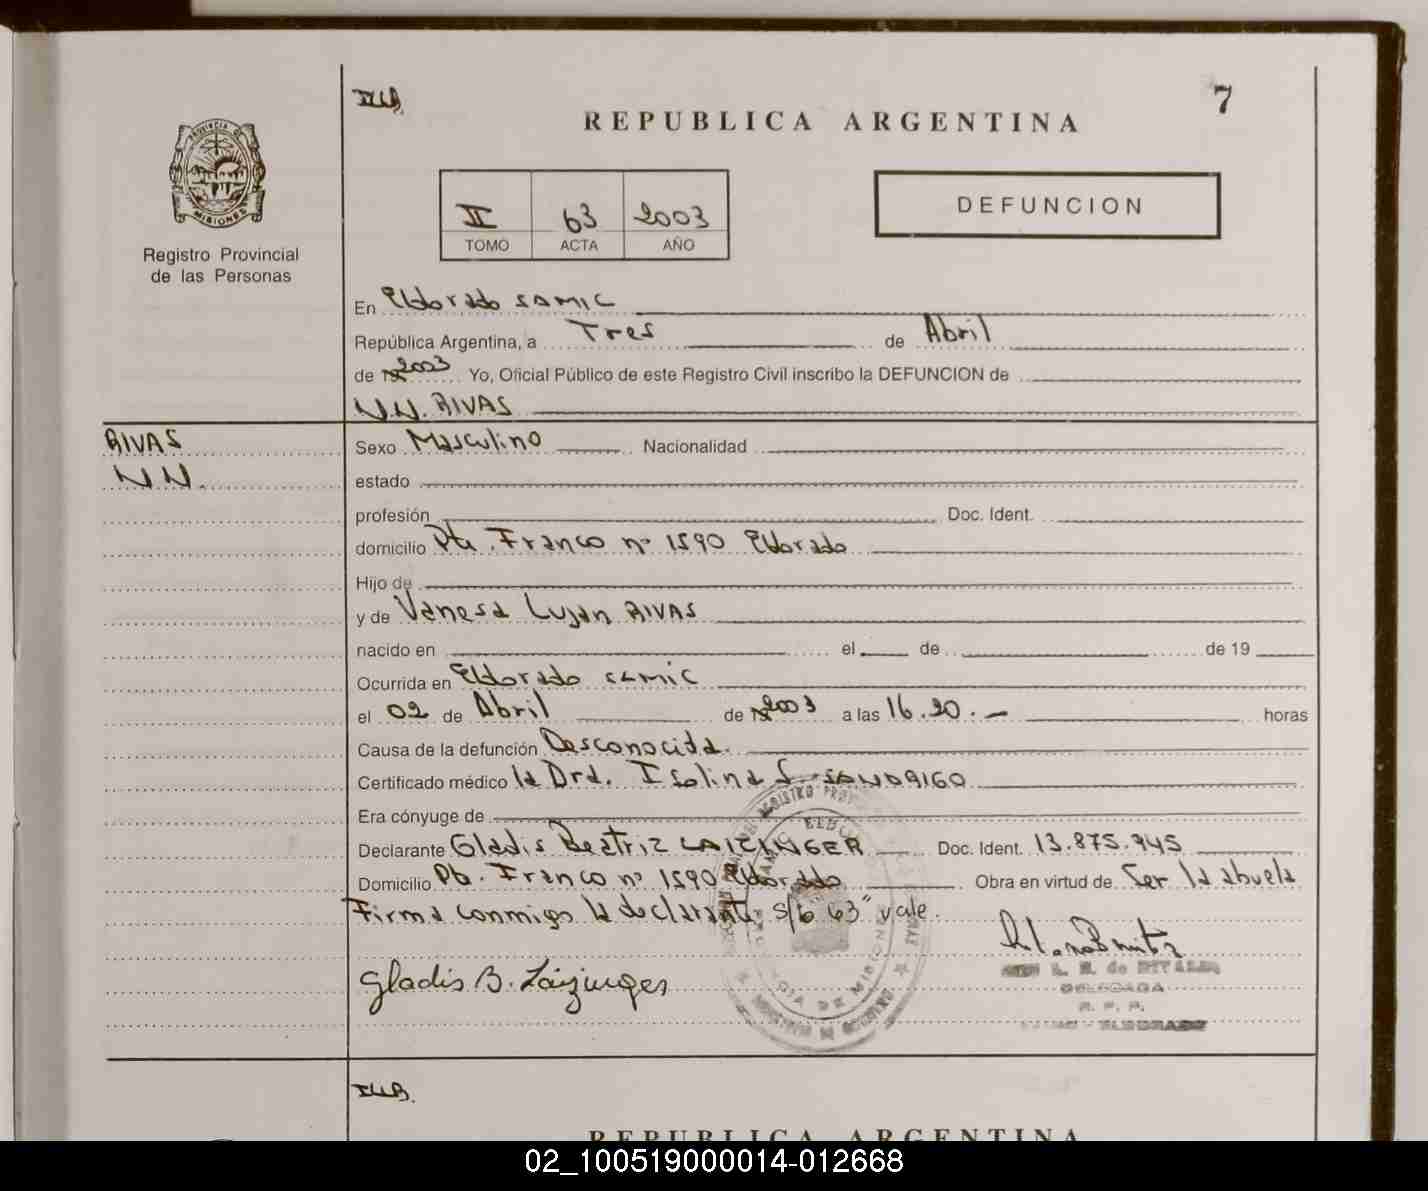 7
REPUBLICA ARGENTINA
PROVINCIA DE
MISIONES
Registro Provincial
de las Personas
II 63 2003
TOMO ACTA AÑO
DEFUNCION
En Eldorado SAMIC
República Argentina, a Tres de Abril
de 19 2003 Yo, Oficial Público de este Registro Civil inscribo la DEFUNCION de
N.N. RIVAS
RIVAS
N N.
Sexo Masculino Nacionalidad
estado
profesión Doc. Ident.
domicilio Pto. Franco nº 1590 Eldorado
Hijo de
y de Vanesa Lujan RIVAS
nacido en el de de 19
Ocurrida en Eldorado SAMIC
el 02 de Abril de 19 2003 a las 16.20.- horas
Causa de la defunción Desconocida.
Certificado médico la Dra. Isolina S. SANDRIGO
Era cónyuge de
Declarante Gladis Beatriz LAIZINGER Doc. Ident. 13.875.945
Domicilio Pto. Franco nº 1590 Eldorado Obra en virtud de Ser la abuela
Firma conmigo la declarante s/b 63" vale.
Gladis B. Laizinger
DELEGADA
R. P. P.
ELDORADO
REPUBLICA ARGENTINA
02_100519000014-012668